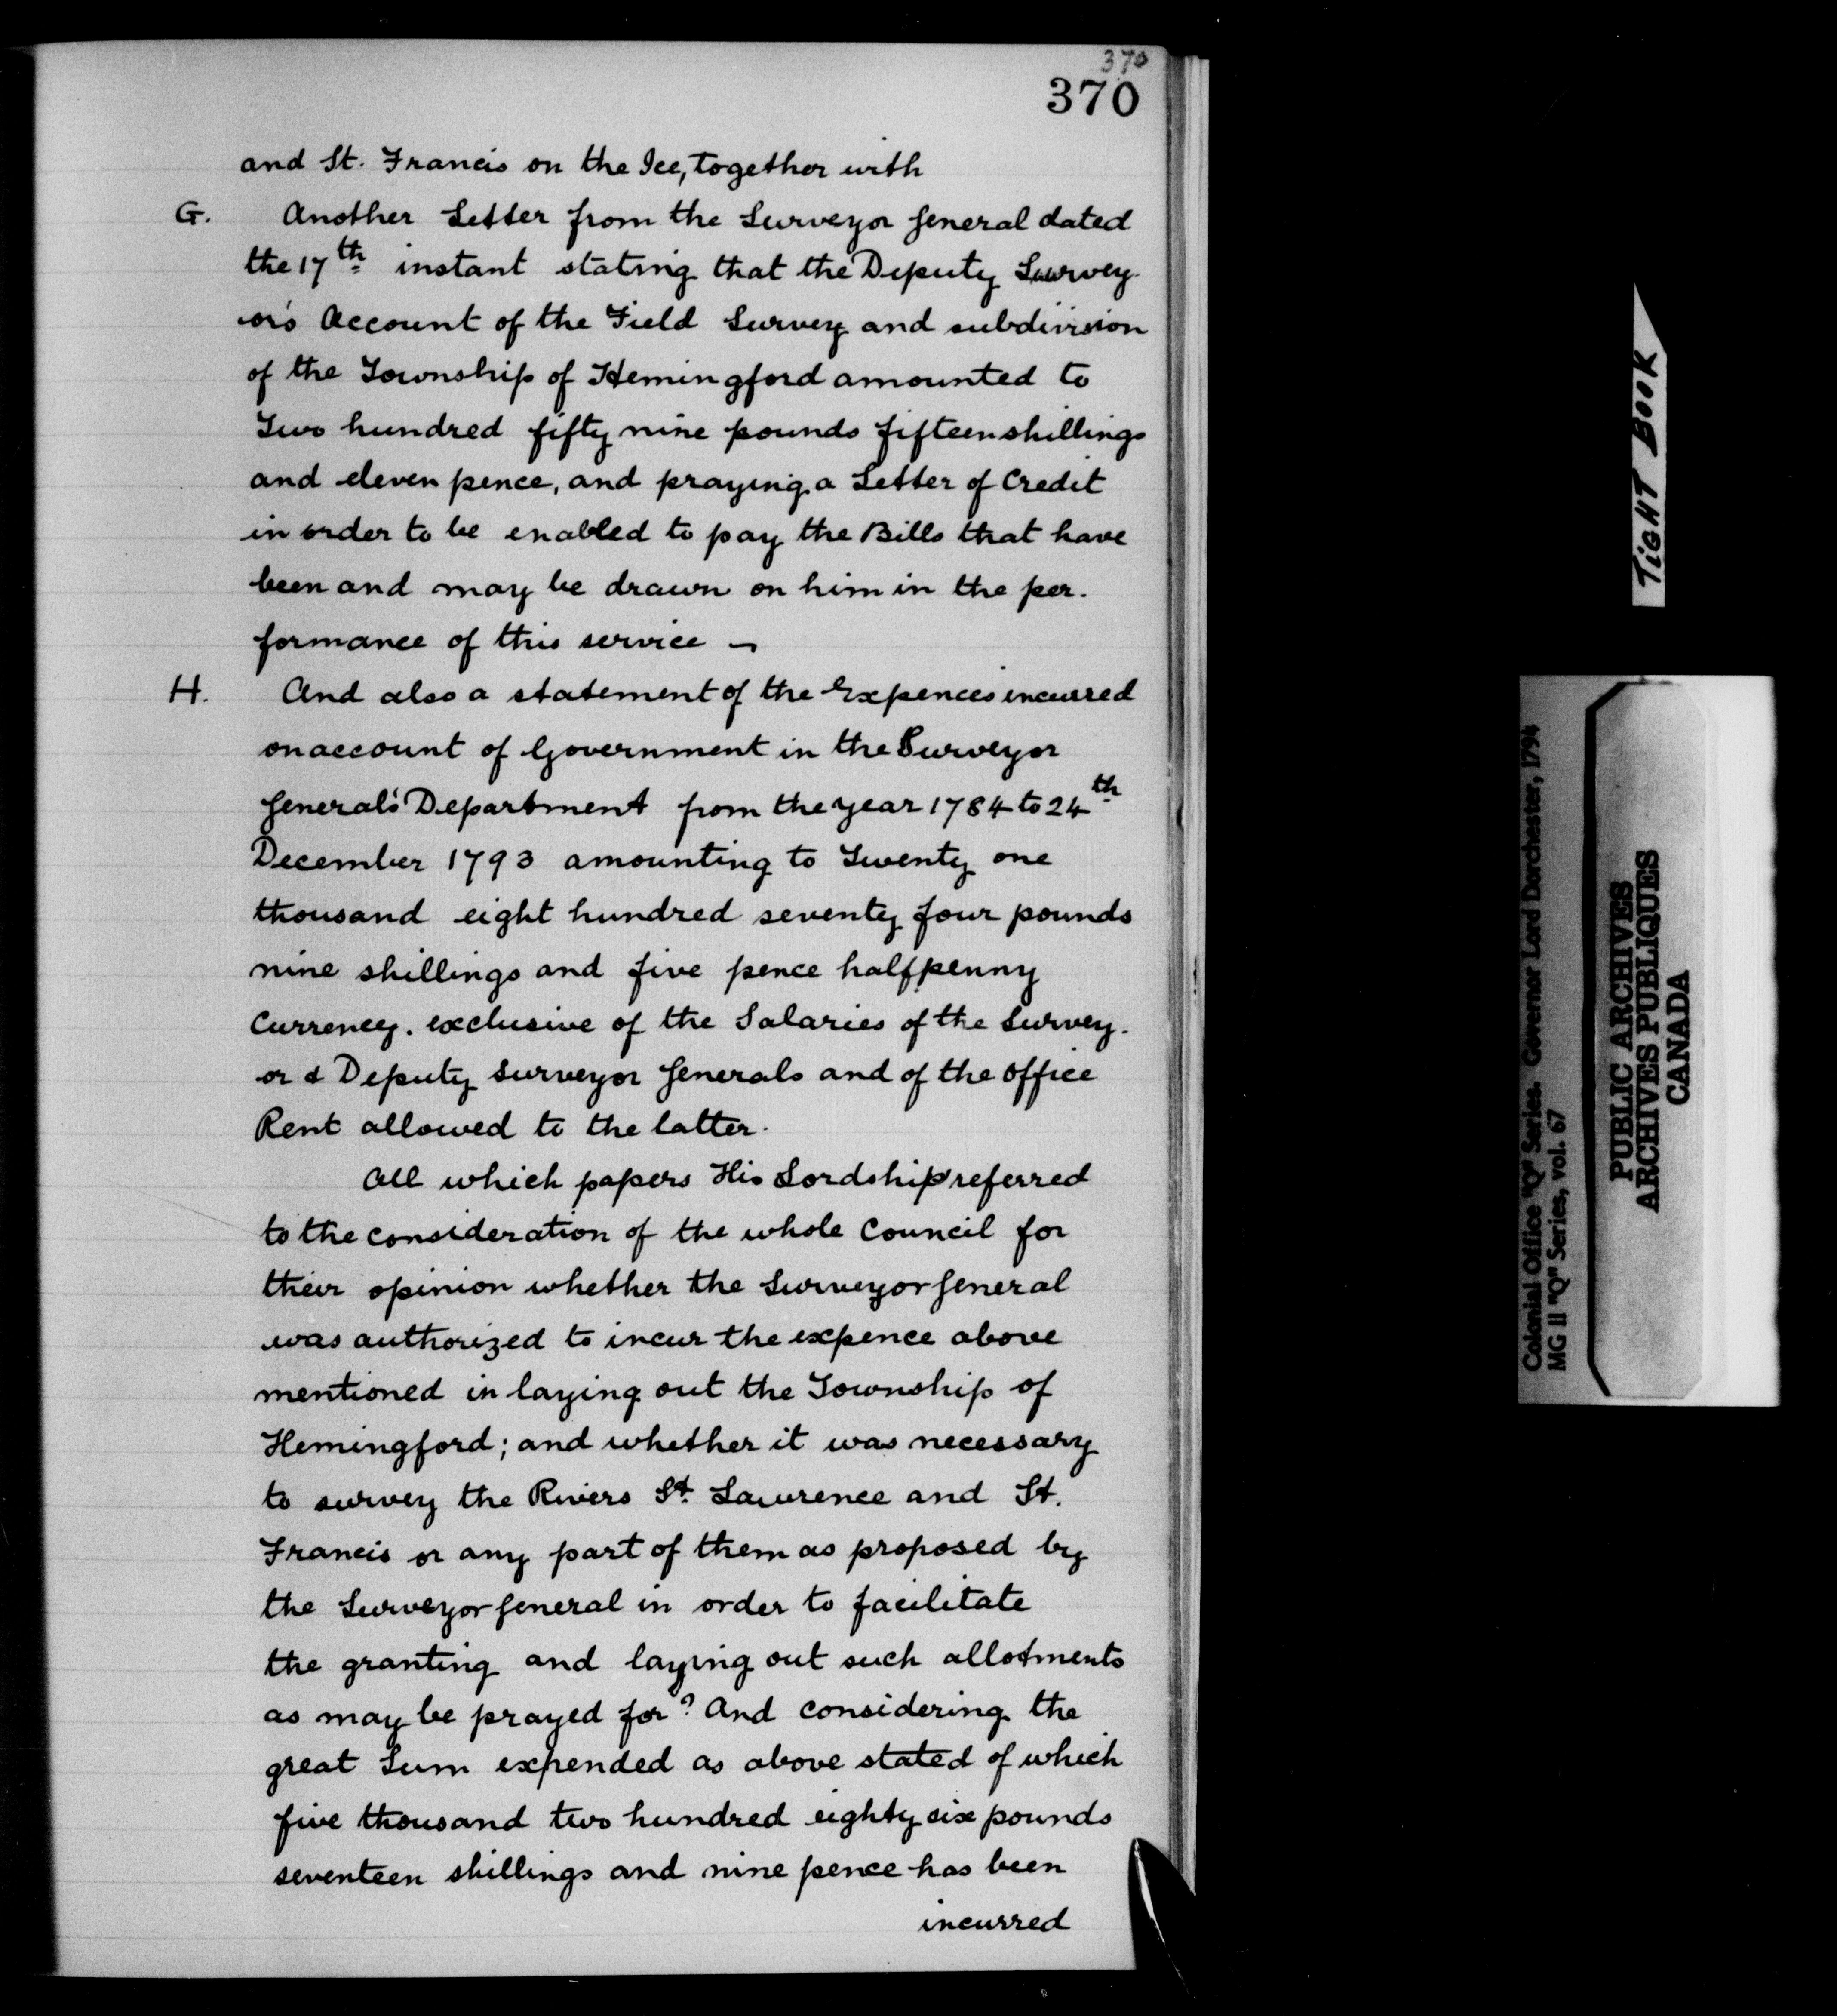 370
370
and St. Francis on the Ice, together with
G. Another Letter from the Surveyor General dated
the 17th instant stating that the Deputy Survey-
-or's Account of the Field Survey and subdivision
of the Township of Hemingford amounted to
Two hundred fifty nine pounds fifteen shillings
and eleven pence, and praying a Letter of Credit
in order to be enabled to pay the Bills that have
been and may be drawn on him in the per-
formance of this service —
H. And also a statement of the Expences incurred
on account of Government in the Surveyor
General's Department from the year 1784 to 24th
December 1793 amounting to Twenty one
thousand eight hundred seventy four pounds
nine shillings and five pence halfpenny
Currency. exclusive of the Salaries of the Survey-
or & Deputy Surveyor Generals and of the office
Rent allowed to the latter.
All which papers His Lordship referred
to the consideration of the whole Council for
their opinion whether the Surveyor General
was authorized to incur the expence above
mentioned in laying out the Township of
Hemingford; and whether it was necessary
to survey the Rivers St. Lawrence and St.
Francis or any part of them as proposed by
the Surveyor General in order to facilitate
the granting and laying out such allotments
as may be prayed for? And considering the
great Sum expended as above stated of which
five thousand two hundred eighty six pounds
seventeen shillings and nine pence has been
incurred
TIGHT BOOK
Colonial Office "Q" Series. Governor Lord Dorchester, 1794
MG 11 "Q" Series, vol. 67
PUBLIC ARCHIVES
ARCHIVES PUBLIQUES
CANADA